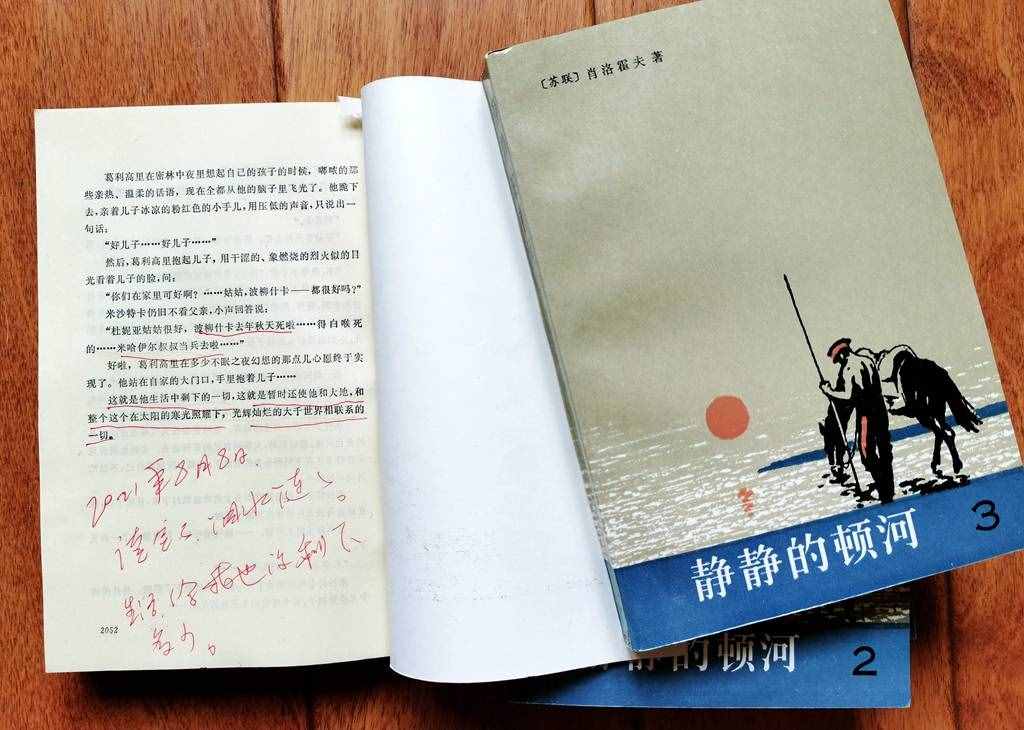 葛利高里在密林中夜里想起自己的孩子的时候，嘟哝的那
些亲热、温柔的话语，现在全都从他的脑子里飞光了。他跪下
去，亲着儿子冰凉的粉红色的小手儿，用压低的声音，只说出一
句话：
“好儿子……好儿子……”
然后，葛利高里抱起儿子，用干涩的、象燃烧的烈火似的目
光看着儿子的脸，问：
“你们在家里可好啊？……姑姑，波柳什卡——都很好吗？”
米沙特卡仍旧不看父亲，小声回答说：
“杜妮亚姑姑很好，波柳什卡去年秋天死啦……得白喉死
的……米哈伊尔叔叔当兵去啦……”
好啦，葛利高里在多少不眠之夜幻想的那点儿心愿终于实
现了。他站在自家的大门口，手里抱着儿子……
这就是他生活中剩下的一切，这就是暂时还使他和大地，和
整个这个在太阳的寒光照耀下，光辉灿烂的大千世界相联系的
一切。
2021年8月8日
给我也没剩下
多少。
2052
〔苏联〕肖洛霍夫 著
静静的顿河
3
静静的顿河
2